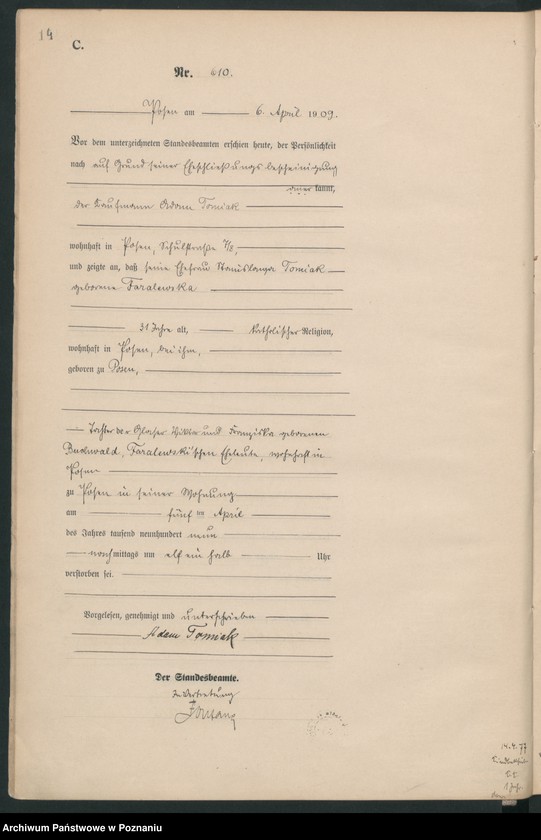 14
C.
Nr. 610.
Posen am 6. April 1909.
Vor dem unterzeichneten Standesbeamten erschien heute, der Persönlichkeit
nach auf Grund seiner Eheschließungsbescheinigung
kannt,
der Kaufmann Adam Tomiak
wohnhaft in Posen, Schulstraße 7/8,
und zeigte an, daß seine Ehefrau Stanislawa Tomiak
geborene Faralewska
31 Jahre alt, katholischer Religion,
wohnhaft in Posen, bei ihm,
geboren zu Posen,
Tochter der Glaser und Franziska geborenen
Buchwald, Faralewski'schen Eheleute, wohnhaft in
Posen
zu Posen in seiner Wohnung
am fünf ten April
des Jahres tausend neunhundert neun
nachmittags um elf ein halb Uhr
verstorben sei.
Vorgelesen, genehmigt und unterschrieben
Adam Tomiak
Der Standesbeamte.
In Vertretung
Archiwum Państwowe w Poznaniu